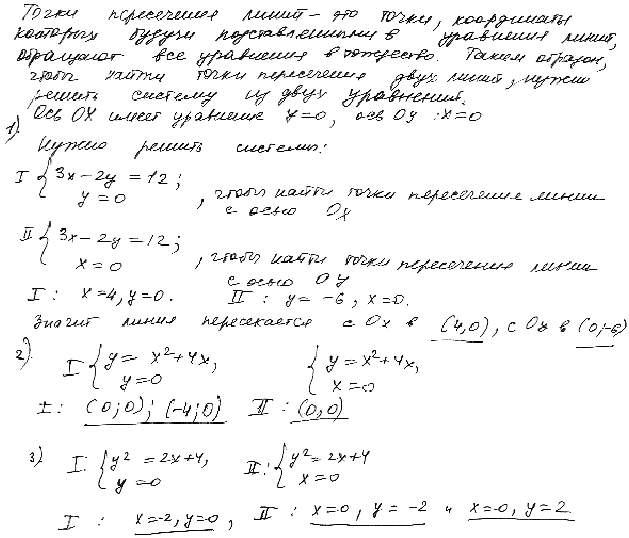 Точки пересечения линий – это точки, координаты
которых будучи подставленными в уравнения линий,
обращают все уравнения в тождество. Таким образом,
чтобы найти точки пересечения двух линий, нужно
решить систему из двух уравнений.
Ось OX имеет уравнение y=0, ось Oy : x=0
1)
Нужно решить системы:
I { 3x-2y=12; y=0 , чтобы найти точки пересечения линии
с осью Ox
II { 3x-2y=12; x=0 , чтобы найти точки пересечения линии
с осью Oy
I: x=4, y=0. II: y=-6, x=0.
Значит линия пересекается с Ox в (4,0), с Oy в (0;-6)
2) I { y=x²+4x, y=0 { y=x²+4x, x=0
I: (0;0); (-4;0) II: (0,0)
3) I: { y²=2x+4, y=0 II: { y²=2x+4 x=0
I: x=-2, y=0, II: x=0, y=-2 и x=0, y=2